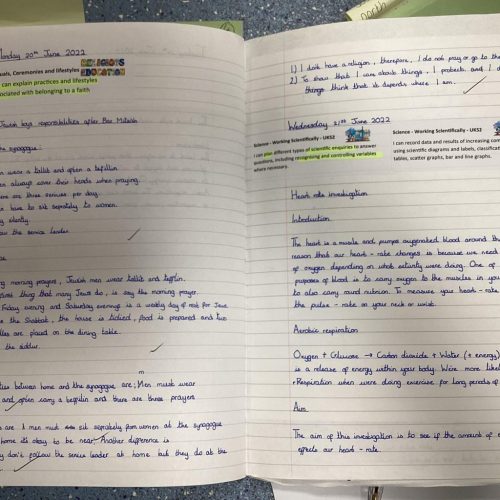 Monday 20th June 2022
RELIGIOUS
EDUCATION
Ceremonies and lifestyles
can explain practices and lifestyles
associated with belonging to a faith
Jewish boys responsibilities after Bar Mitzvah
synagogue:
wear a tallit and often a tefillin
always cover their heads when praying.
There are three services per day.
have to sit sepratly to women.
silently.
the service leader.
morning prayers, Jewish men wear tallit and tefflin.
first thing that many Jews do, is say the morning prayer.
Friday evening and Saturday evening is a weekly day of rest for Jews
the Shabbat, the house is tidied, food is prepared and two
are placed on the dining table.
the siddur.
m
between home and the synagogue are; Men must wear
and often carry a teffulin and there are three prayers
are A men must sit sepratly from women at the synagogue
home its okay to be near. Another difference is
don't follow the service leader at home but they do at the
north
1) I dont have a religion, therefore, I do not pray or go to the
2) To show that I care about things, I protect and I do
things think that is depends where I am.
Wednesday 22nd June 2022
Science - Working Scientifically - UKS2
I can plan different types of scientific enquiries to answer
questions, including recognising and controlling variables
where necessary.
Science - Working Scientifically - UKS2
I can record data and results of increasing com
using scientific diagrams and labels, classificat
tables, scatter graphs, bar and line graphs.
Heart rate investigation
Introduction
The heart is a muscle and pumps oxygenated blood around the
reason that our heart - rate changes is because we need
of oxygen depending on what activity were doing. One of
purposes of blood is to carry oxygen to the muscles in your
to also carry round nutrion. To measure your heart - rate
the pulse - rate on your neck or wrist.
Aerobic respiration
Oxygen + Glucose → Carbon dioxide + Water (+ energy)
is a release of energy within your body. We're more likely
Respiration when were doing exercise for long periods of
Aim
The aim of this investigation is to see if the amount of e
effects our heart - rate.